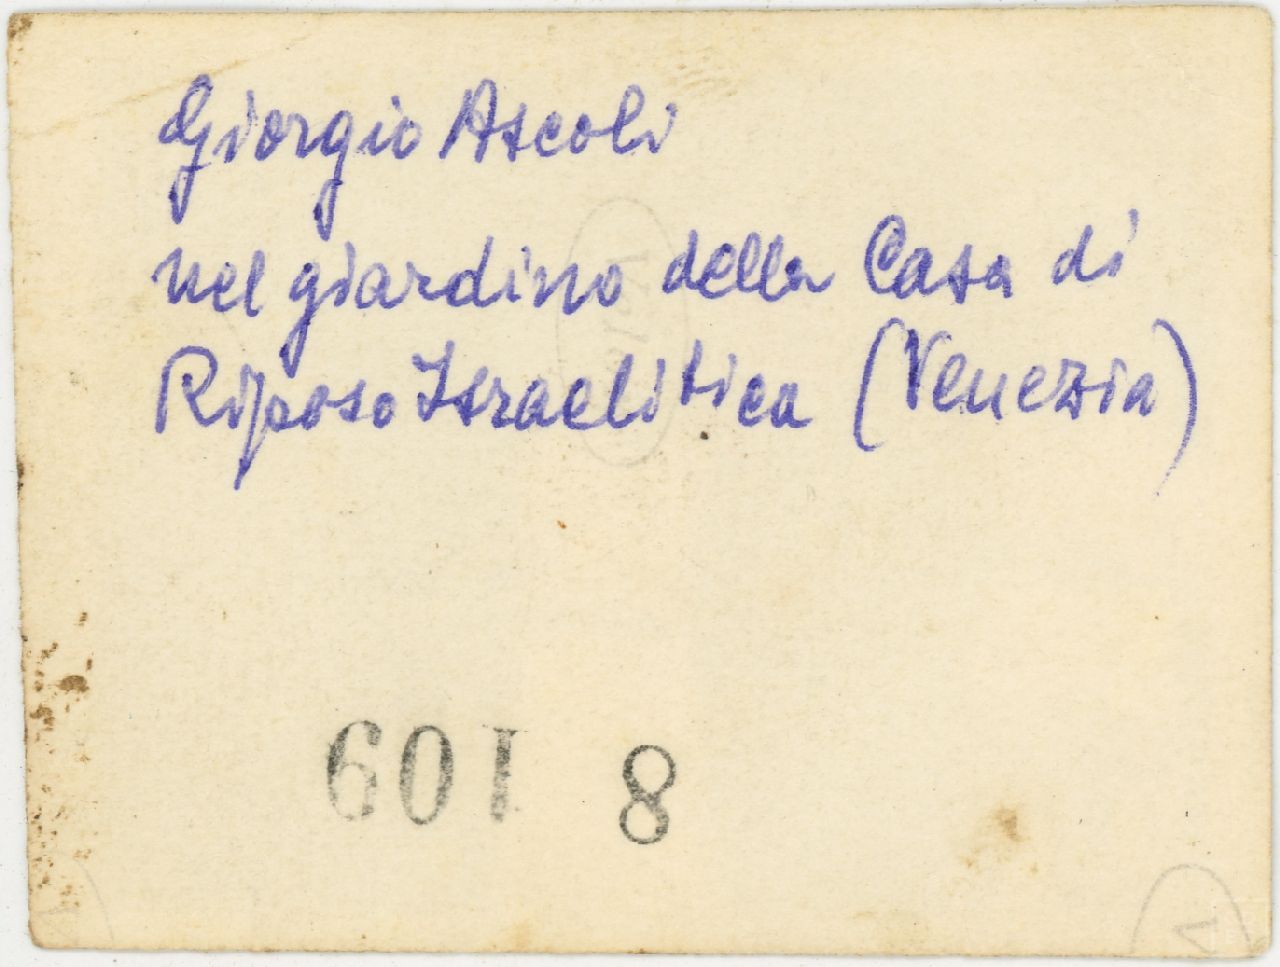 Giorgio Ascoli
nel giardino della Casa di
Riposo Israelitica (Venezia)
8 109